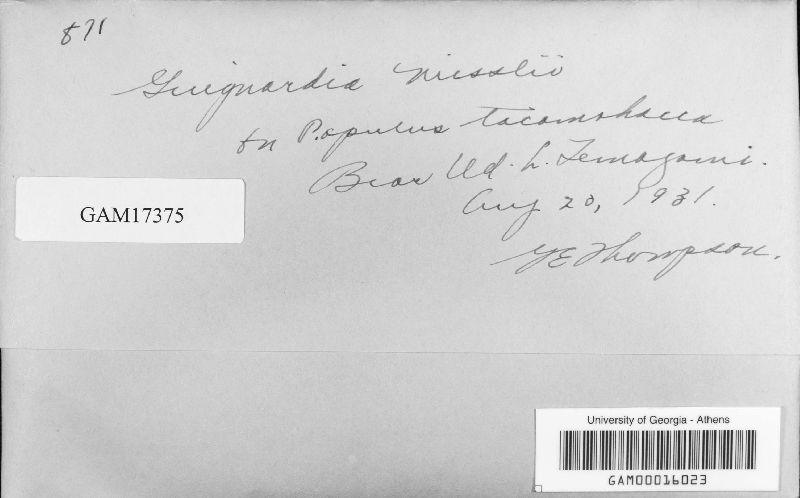 871
Guignardia niesslii
on Populus tacamahacca
Bear Isd. L. Temagami.
Aug 20, 1931.
GAM17375
G E Thompson.
University of Georgia - Athens
GAM00016023